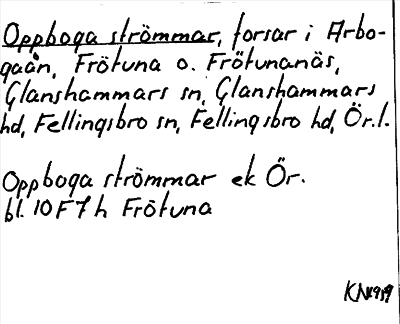 Oppboga strömmar, forsar i Arbo-
gaån, Frötuna o. Frötunanäs,
Glanshammars sn, Glanshammars
hd, Fellingsbro sn, Fellingsbro hd, Ör.l.
Oppboga strömmar ek Ör.
bl. 10F7h Frötuna